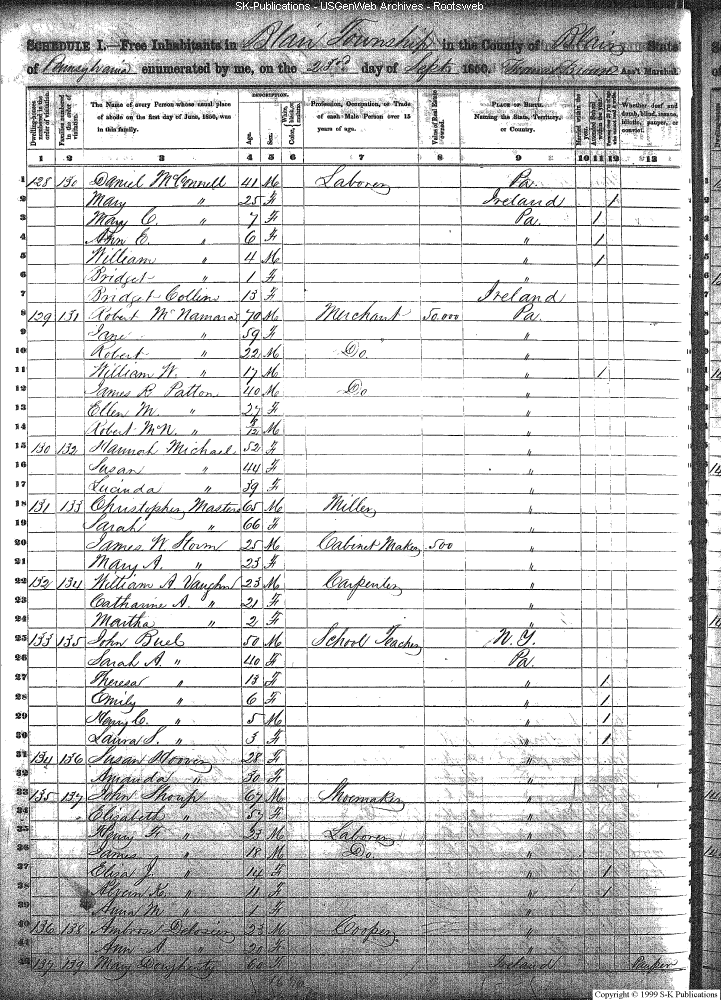 SK-Publications - USGenWeb Archives - Rootsweb
SCHEDULE I.—Free Inhabitants in Blair Township in the County of Blair State
of Pennsylvania enumerated by me, on the 23d day of Sept 1850. Ass't Marshal.
DESCRIPTION.
Dwelling-houses numbered in the order of visitation.
Families numbered in the order of visitation.
The Name of every Person whose usual place of abode on the first day of June, 1850, was in this family.
Age.
Sex.
White, black, or mulatto.
Color,
Profession, Occupation, or Trade of each Male Person over 15 years of age.
Value of Real Estate owned.
PLACE OF BIRTH. Naming the State, Territory, or Country.
Married within the year.
Attended School within the year.
Whether deaf and dumb, blind, insane, idiotic, pauper, or convict.
1 2 3 4 5 6 7 8 9 10 11 12 13
1 128 130 Daniel McConnell 41 M Laborer Pa.
2 Mary " 25 F Ireland /
3 Mary C. " 7 F Pa. /
4 Ann E. " 6 F " /
5 William " 4 M " /
6 Bridget " 1 F "
7 Bridget Collins 13 F Ireland
8 129 131 Robert McNamara 70 M Merchant 50,000 Pa.
9 Jane " 59 F "
10 Robert " 22 M Do. "
11 William W. " 17 M " /
12 James B Patton 40 M Do "
13 Ellen M. " 27 F "
14 Robert McN. " /12 M "
15 130 132 Hannah Michael 52 F "
16 Susan " 44 F "
17 Lucinda " 39 F "
18 131 133 Christopher Masters 65 M Miller "
19 Sarah " 66 F "
20 James W Storm 25 M Cabinet Maker 500 "
21 Mary A. " 23 F "
22 132 134 William A. Vaughn 23 M Carpenter "
23 Catharine A. " 21 F "
24 Martha " 2 F "
25 133 135 John Buel 50 M School Teacher N.Y.
26 Sarah A. " 40 F Pa.
27 Theresa " 13 F " /
28 Emily " 6 F " /
29 Henry C. " 5 M " /
30 Laura S. " 3 F " /
31 134 136 Susan Hoover 28 F "
32 Amanda " 30 F "
33 135 137 John Shoup 67 M Shoemaker "
34 Elizabeth " 57 F "
35 Henry F. " 23 M Laborer "
36 James " 18 M Do. "
37 Eliza J. " 14 F " /
38 K. " 11 F " /
39 Anna M " 1 F "
40 136 138 Ambrose Delosier 23 M Cooper "
41 Ann A. " 20 F "
42 137 139 Mary Dougherty 60 F Ireland Pauper
Copyright © 1999 S-K Publications